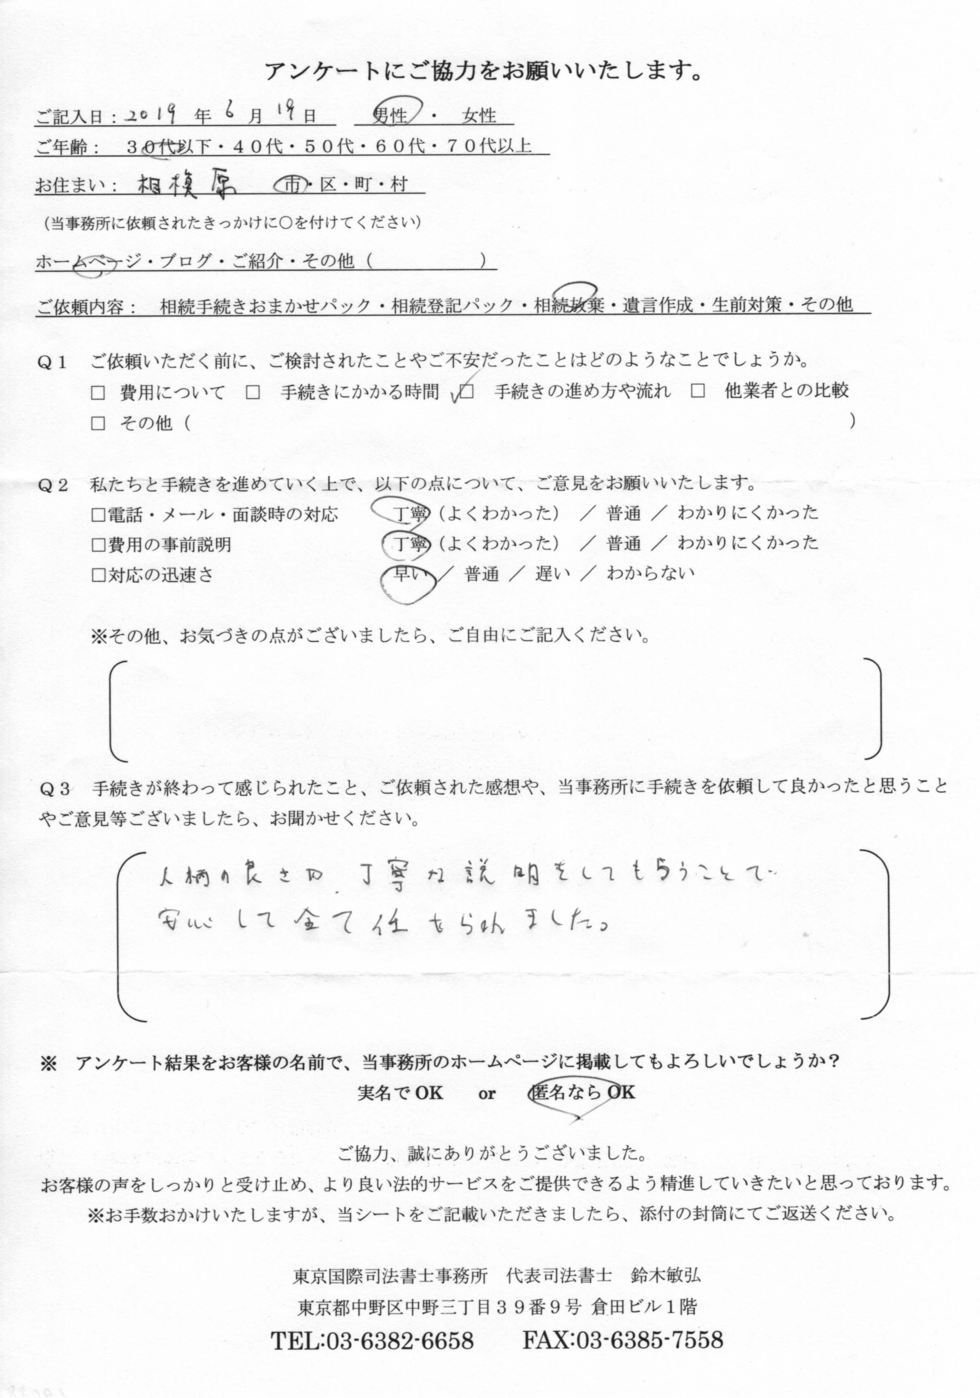 アンケートにご協力をお願いいたします。
ご記入日：2019 年 6 月 19 日　男性 ・ 女性
ご年齢：　３０代以下・４０代・５０代・６０代・７０代以上
お住まい：　相模原　市・区・町・村
（当事務所に依頼されたきっかけに○を付けてください）
ホームページ・ブログ・ご紹介・その他（　　　　　　）
ご依頼内容：　相続手続きおまかせパック・相続登記パック・相続放棄・遺言作成・生前対策・その他
Ｑ１　ご依頼いただく前に、ご検討されたことやご不安だったことはどのようなことでしょうか。
□ 費用について　□ 手続きにかかる時間　✓□ 手続きの進め方や流れ　□ 他業者との比較
□ その他（　　　　　　　　　　　　　　　　　　　　　　）
Ｑ２　私たちと手続きを進めていく上で、以下の点について、ご意見をお願いいたします。
□電話・メール・面談時の対応　丁寧（よくわかった）　／ 普通 ／ わかりにくかった
□費用の事前説明　丁寧（よくわかった）　／ 普通 ／ わかりにくかった
□対応の迅速さ　早い ／ 普通 ／ 遅い ／ わからない
※その他、お気づきの点がございましたら、ご自由にご記入ください。
Ｑ３　手続きが終わって感じられたこと、ご依頼された感想や、当事務所に手続きを依頼して良かったと思うこと
やご意見等ございましたら、お聞かせください。
人柄の良さや、丁寧な説明をしてもらうことで
安心して全て任せられました。
※　アンケート結果をお客様の名前で、当事務所のホームページに掲載してもよろしいでしょうか？
実名でOK　or　匿名ならOK
ご協力、誠にありがとうございました。
お客様の声をしっかりと受け止め、より良い法的サービスをご提供できるよう精進していきたいと思っております。
※お手数おかけいたしますが、当シートをご記載いただきましたら、添付の封筒にてご返送ください。
東京国際司法書士事務所　代表司法書士　鈴木敏弘
東京都中野区中野三丁目３９番９号 倉田ビル１階
TEL:03-6382-6658　FAX:03-6385-7558